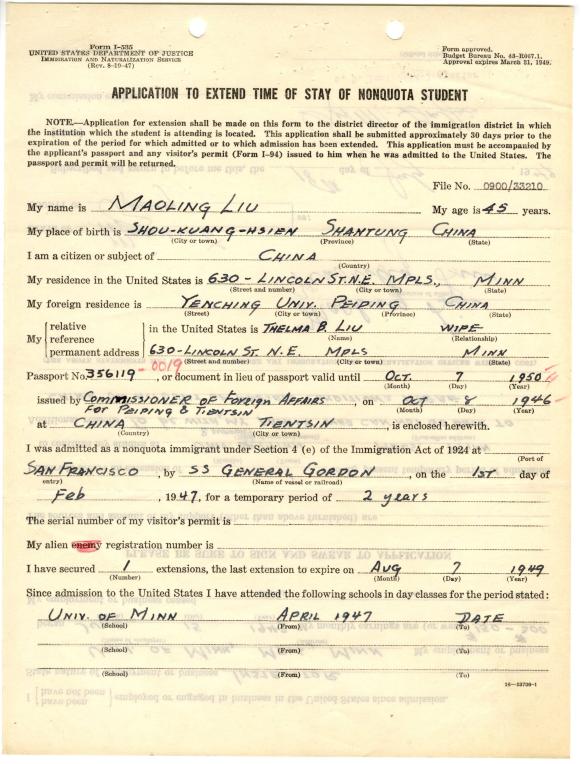 Form I-535
UNITED STATES DEPARTMENT OF JUSTICE
IMMIGRATION AND NATURALIZATION SERVICE
(Rev. 8-19-47)
Form approved.
Budget Bureau No. 43-R067.1.
Approval expires March 31, 1949.
APPLICATION TO EXTEND TIME OF STAY OF NONQUOTA STUDENT
NOTE.—Application for extension shall be made on this form to the district director of the immigration district in which
the institution which the student is attending is located. This application shall be submitted approximately 30 days prior to the
expiration of the period for which admitted or to which admission has been extended. This application must be accompanied
by the applicant's passport and any visitor's permit (Form I-94) issued to him when he was admitted to the United States. The
passport and permit will be returned.
File No. 0900/33210
My name is MAOLING LIU My age is 45 years.
My place of birth is SHOU-KUANG-HSIEN SHANTUNG CHINA
(City or town) (Province) (State)
I am a citizen or subject of CHINA
(Country)
My residence in the United States is 630 - LINCOLN ST. N.E. MPLS., MINN
(Street and number) (City or town) (State)
My foreign residence is YENCHING UNIV. PEIPING CHINA
(Street) (City or town) (Province) (State)
My relative reference permanent address in the United States is THELMA B. LIU WIFE
(Name) (Relationship)
630-LINCOLN ST. N.E. MPLS MINN
(Street and number) (City or town) (State)
Passport No. 356119 -0019, or document in lieu of passport valid until OCT. 7 1950
(Month) (Day) (Year)
issued by COMMISSIONER OF FOREIGN AFFAIRS FOR PEIPING & TIENTSIN, on OCT 8 1946
(Month) (Day) (Year)
at CHINA TIENTSIN, is enclosed herewith.
(Country) (City or town)
I was admitted as a nonquota immigrant under Section 4 (e) of the Immigration Act of 1924 at
(Port of
SAN FRANCISCO, by SS GENERAL GORDON, on the 1ST day of
entry) (Name of vessel or railroad)
Feb, 1947, for a temporary period of 2 years
The serial number of my visitor's permit is
My alien enemy registration number is
I have secured 1 extensions, the last extension to expire on AUG 7 1949
(Number) (Month) (Day) (Year)
Since admission to the United States I have attended the following schools in day classes for the period stated:
UNIV. OF MINN APRIL 1947 DATE
(School) (From) (To)
(School) (From) (To)
(School) (From) (To)
16—53709-1